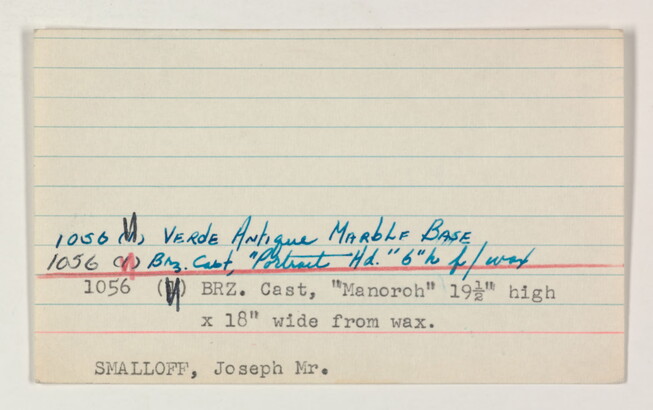 1056 (1) VERDE Antique MARBLE BASE
1056 (1) Brz. Cast, "Portrait Hd." 6"h f/wax
1056 (1) BRZ. Cast, "Manoroh" 19½" high
x 18" wide from wax.
SMALLOFF, Joseph Mr.